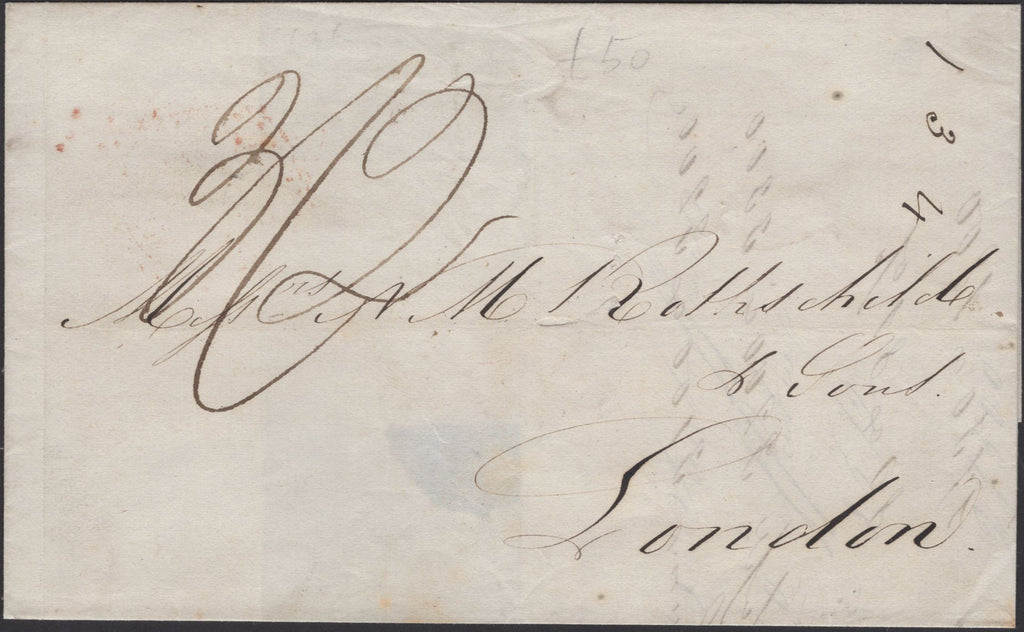 £50
1 3 4
Messrs N M Rothschild
& Sons.
London.